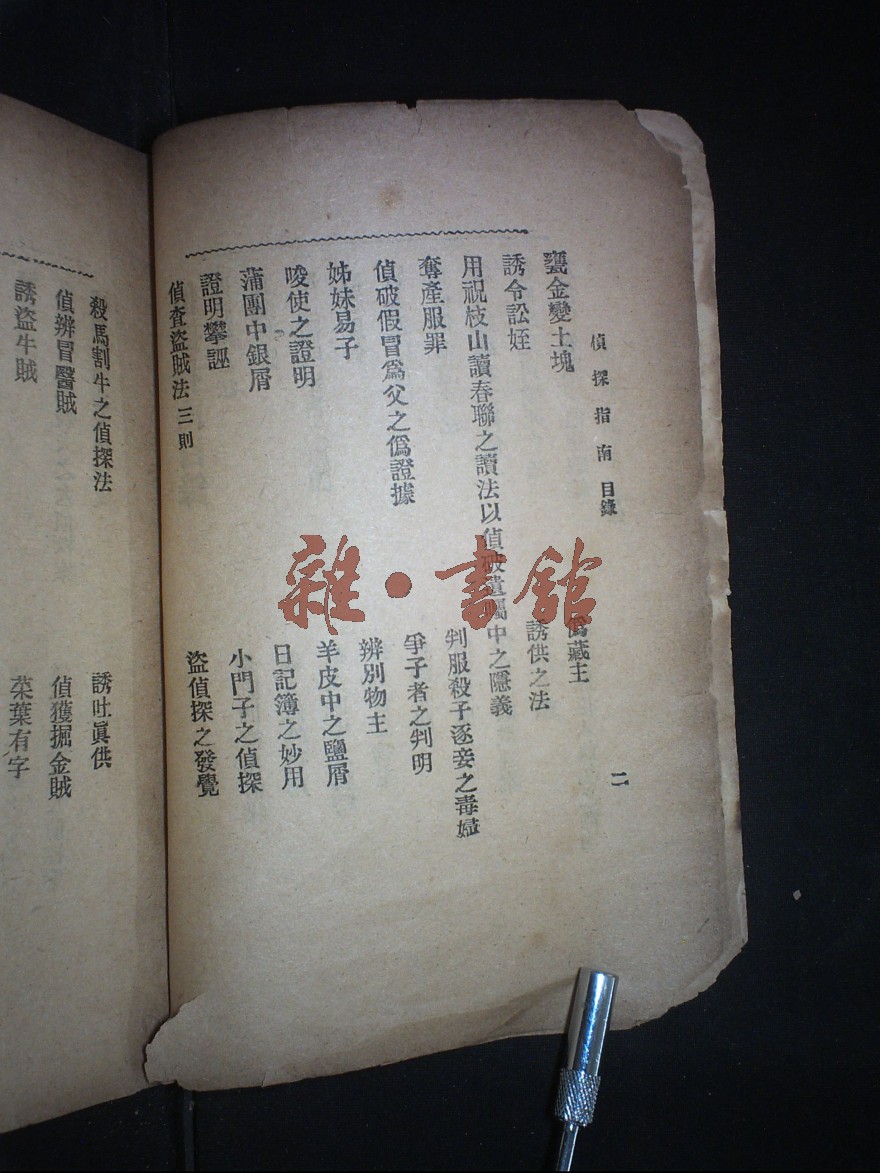 偵探指南 目錄 二
甕金變土塊 僞藏主
誘令訟姪 誘供之法
用祝枝山讀春聯之讀法以偵破遺囑中之隱義
奪產服罪 判服殺子逐妾之毒婦
偵破假冒爲父之僞證據 爭子者之判明
姊妹易子 辨別物主
唆使之證明 羊皮中之鹽屑
蒲團中銀屑 日記簿之妙用
證明攀誣 小門子之偵探
偵查盜賊法三則 盜偵探之發覺
殺馬割牛之偵探法 誘吐眞供
偵辨冒醫賊 偵獲掘金賊
誘盜牛賊 菜葉有字
雜·書館